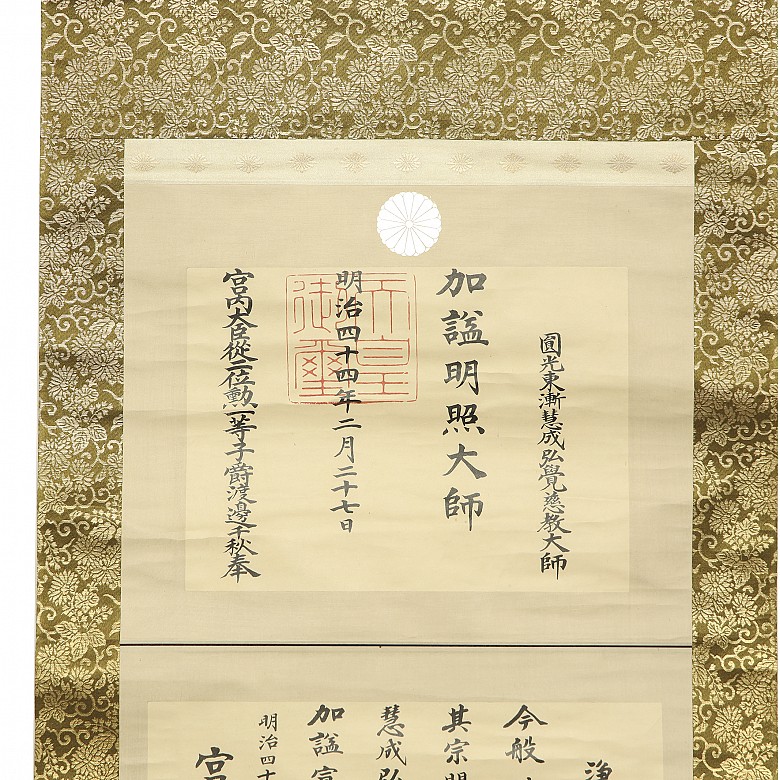 圓光東漸慧成弘覺慈教大師
加謚明照大師
明治四十四年二月二十七日
天皇御璽
宮内大臣從二位勲一等子爵渡邊千秋奉
淨
今般
其宗開
慧成弘
加謚宣
明治四十
宮